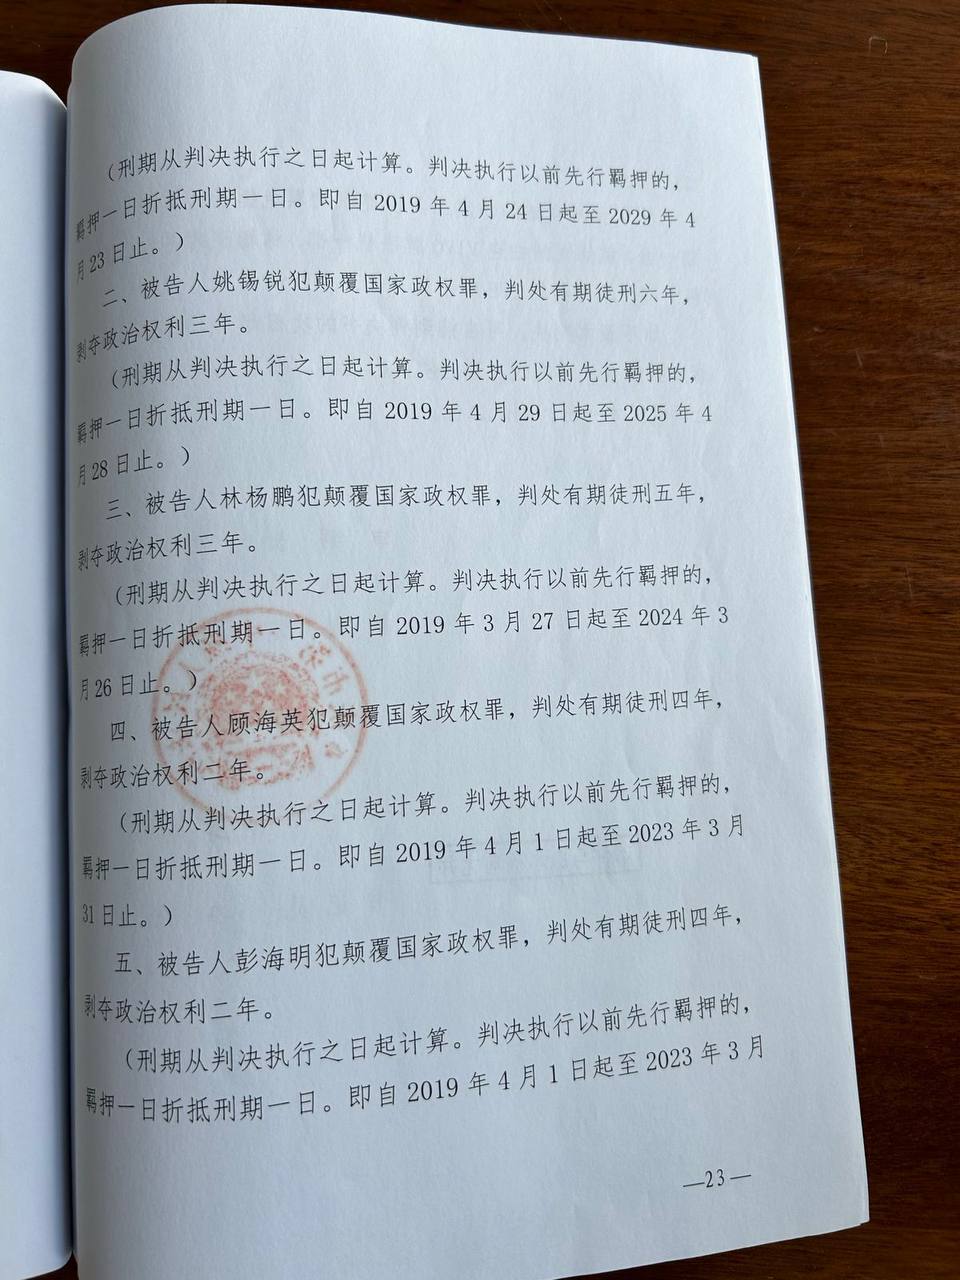 （刑期从判决执行之日起计算。判决执行以前先行羁押的，
羁押一日折抵刑期一日。即自 2019 年 4 月 24 日起至 2029 年 4
月 23 日止。）
二、被告人姚锡锐犯颠覆国家政权罪，判处有期徒刑六年，
剥夺政治权利三年。
（刑期从判决执行之日起计算。判决执行以前先行羁押的，
羁押一日折抵刑期一日。即自 2019 年 4 月 29 日起至 2025 年 4
月 28 日止。）
三、被告人林杨鹏犯颠覆国家政权罪，判处有期徒刑五年，
剥夺政治权利三年。
（刑期从判决执行之日起计算。判决执行以前先行羁押的，
羁押一日折抵刑期一日。即自 2019 年 3 月 27 日起至 2024 年 3
月 26 日止。）
四、被告人顾海英犯颠覆国家政权罪，判处有期徒刑四年，
剥夺政治权利二年。
（刑期从判决执行之日起计算。判决执行以前先行羁押的，
羁押一日折抵刑期一日。即自 2019 年 4 月 1 日起至 2023 年 3 月
31 日止。）
五、被告人彭海明犯颠覆国家政权罪，判处有期徒刑四年，
剥夺政治权利二年。
（刑期从判决执行之日起计算。判决执行以前先行羁押的，
羁押一日折抵刑期一日。即自 2019 年 4 月 1 日起至 2023 年 3 月
—23—